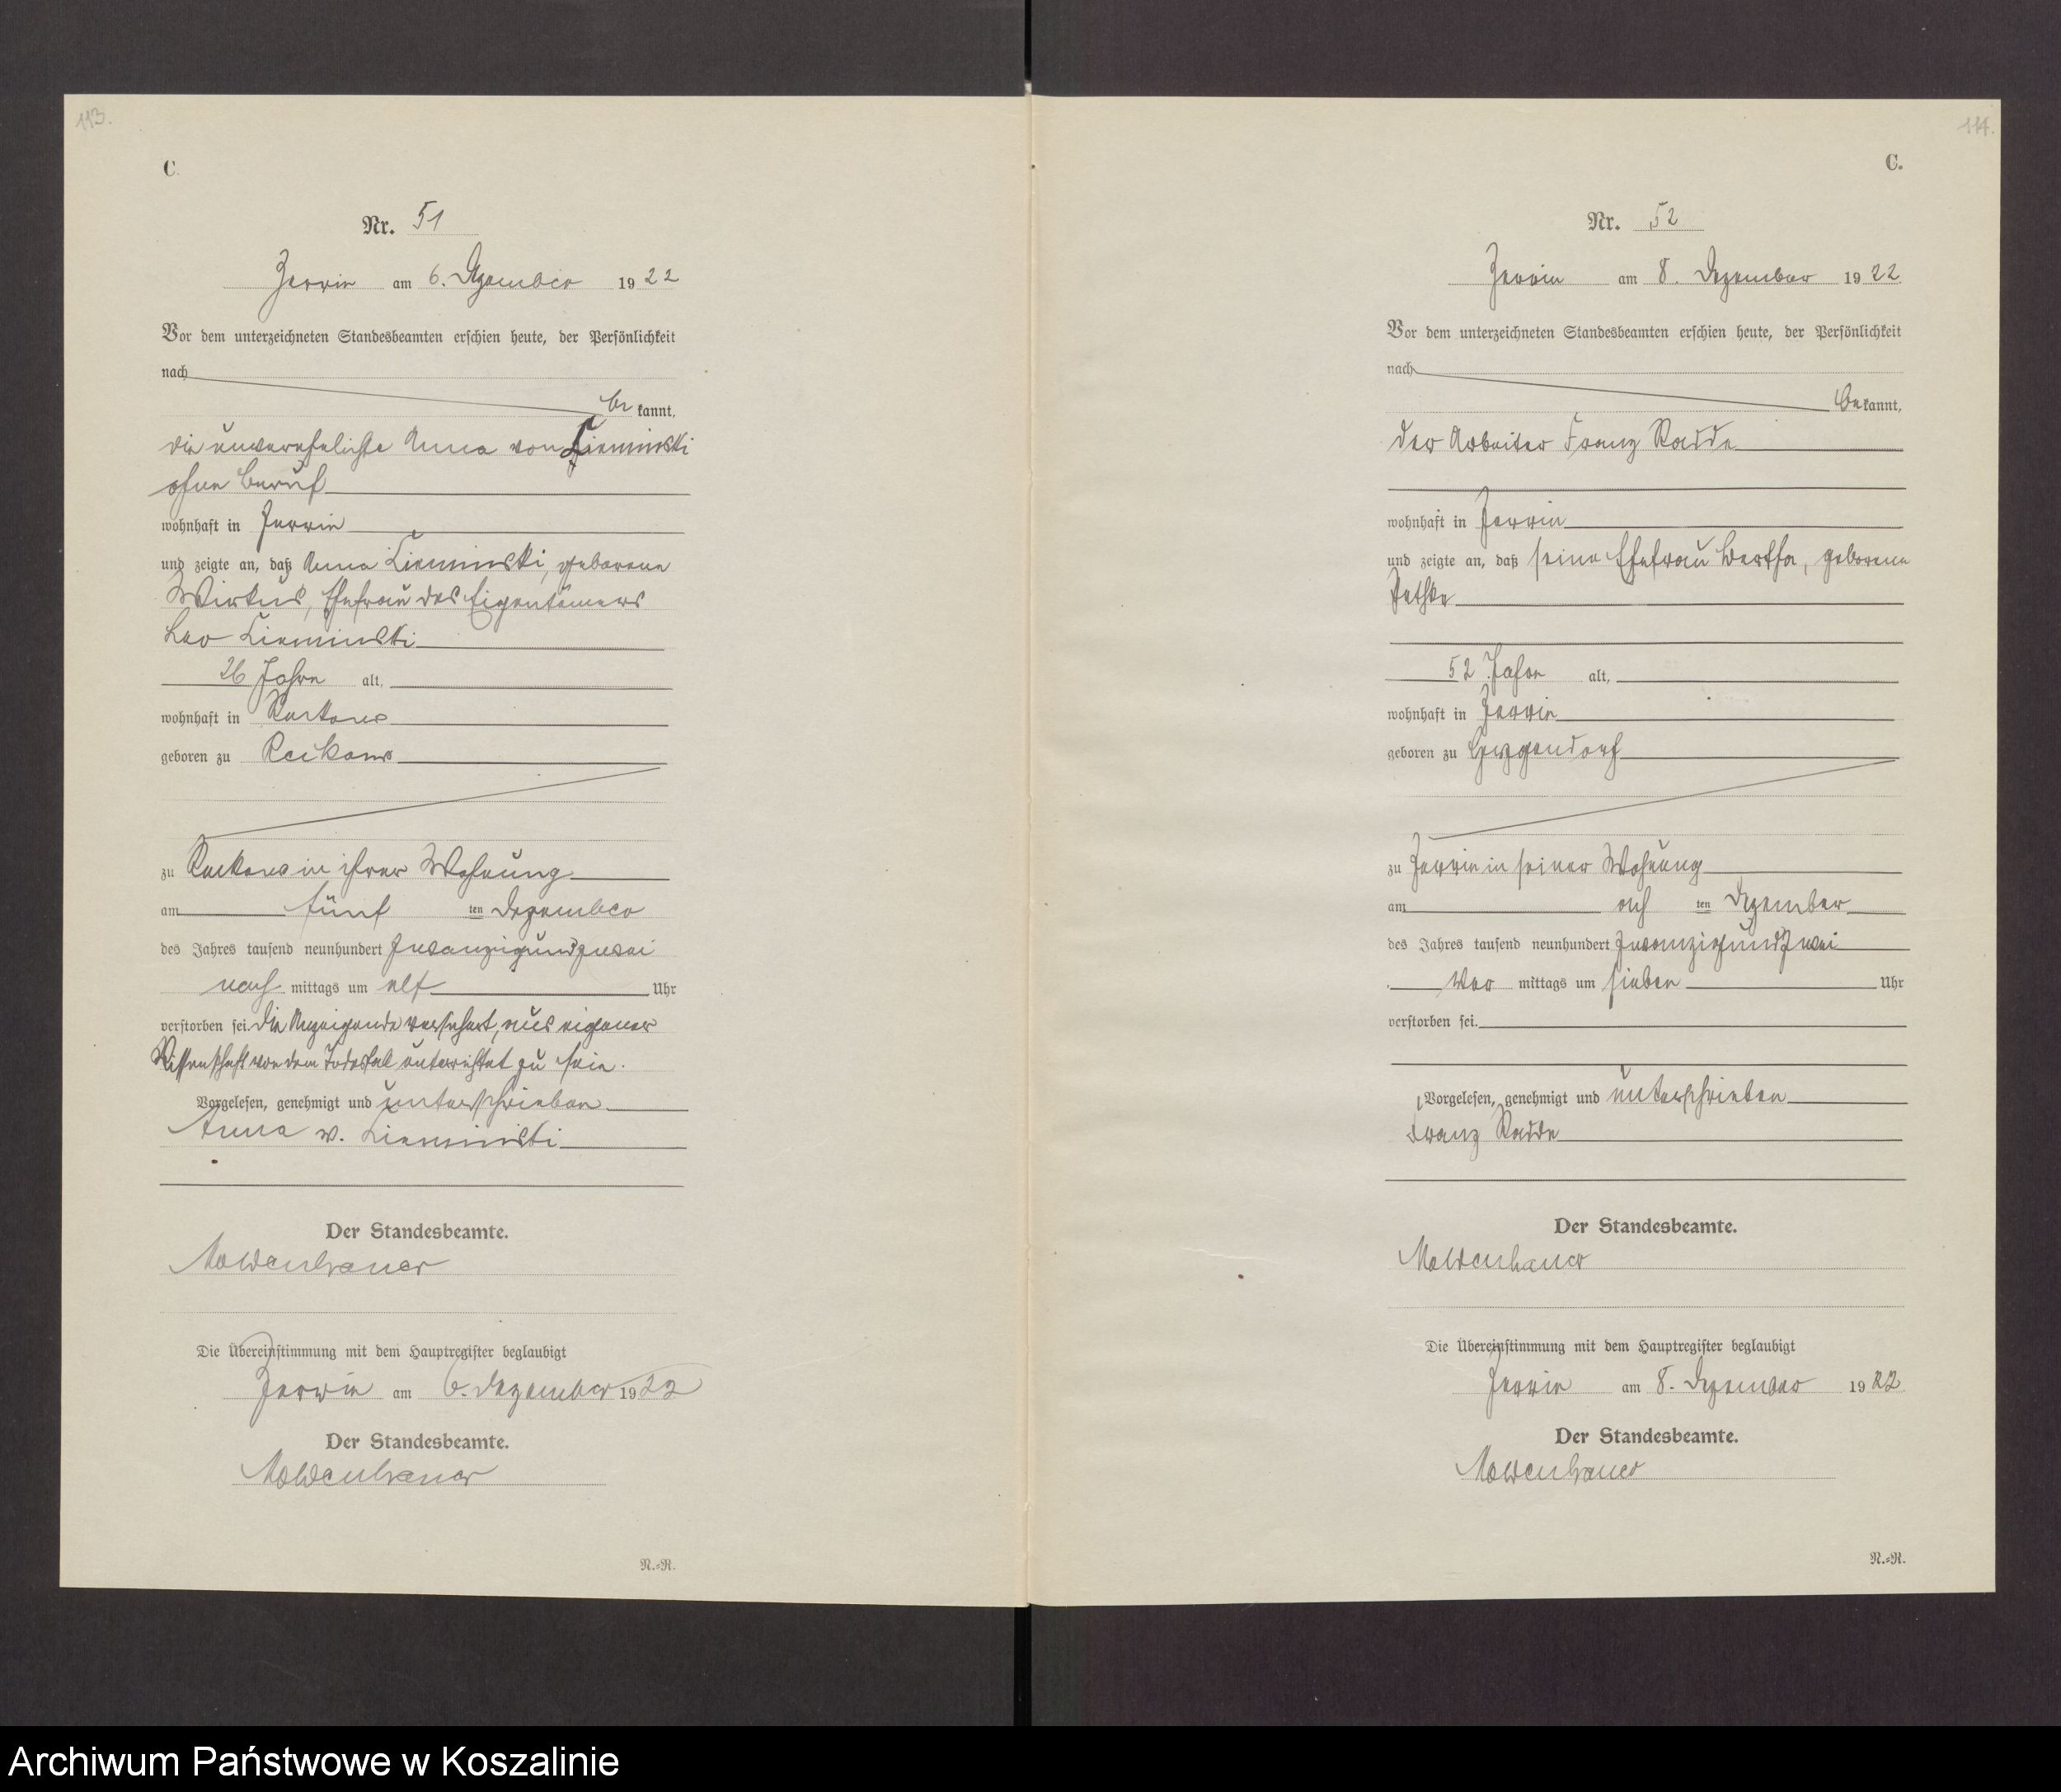 113.
C.
Nr. 51
Zerrin am 6. Dezember 1922
Vor dem unterzeichneten Standesbeamten erschien heute, der Persönlichkeit
nach
be kannt,
die unverehelichte Anna von Lieminski
ohne Beruf
wohnhaft in Zerrin
und zeigte an, daß Anna Lieminski, geborene
Wirkus, Ehefrau des Eigentümers
Leo Lieminski
26 Jahre alt,
wohnhaft in
geboren zu
zu in ihrer Wohnung
am fünf ten Dezember
des Jahres tausend neunhundert zwanzigundzwei
nach mittags um elf Uhr
verstorben sei. Die Anzeigende versichert, aus eigener
Wissenschaft von dem Todesfall unterrichtet zu sein.
Vorgelesen, genehmigt und unterschrieben
Anna v. Lieminski
Der Standesbeamte.
Moldenhauer
Die Übereinstimmung mit dem Hauptregister beglaubigt
Zerrin am 6. Dezember 1922
Der Standesbeamte.
Moldenhauer
N.=R.
114.
C.
Nr. 52
Zerrin am 8. Dezember 1922.
Vor dem unterzeichneten Standesbeamten erschien heute, der Persönlichkeit
nach
bekannt,
der Arbeiter Franz Radde
wohnhaft in Zerrin
und zeigte an, daß seine Ehefrau Bertha, geborene
52 Jahre alt,
wohnhaft in Zerrin
geboren zu
zu Zerrin in seiner Wohnung
am ten Dezember
des Jahres tausend neunhundert zwanzigundzwei
Vor mittags um sieben Uhr
verstorben sei.
Vorgelesen, genehmigt und unterschrieben
Franz Radde
Der Standesbeamte.
Moldenhauer
Die Übereinstimmung mit dem Hauptregister beglaubigt
Zerrin am 8. Dezember 1922.
Der Standesbeamte.
Moldenhauer
N.=R.
Archiwum Państwowe w Koszalinie